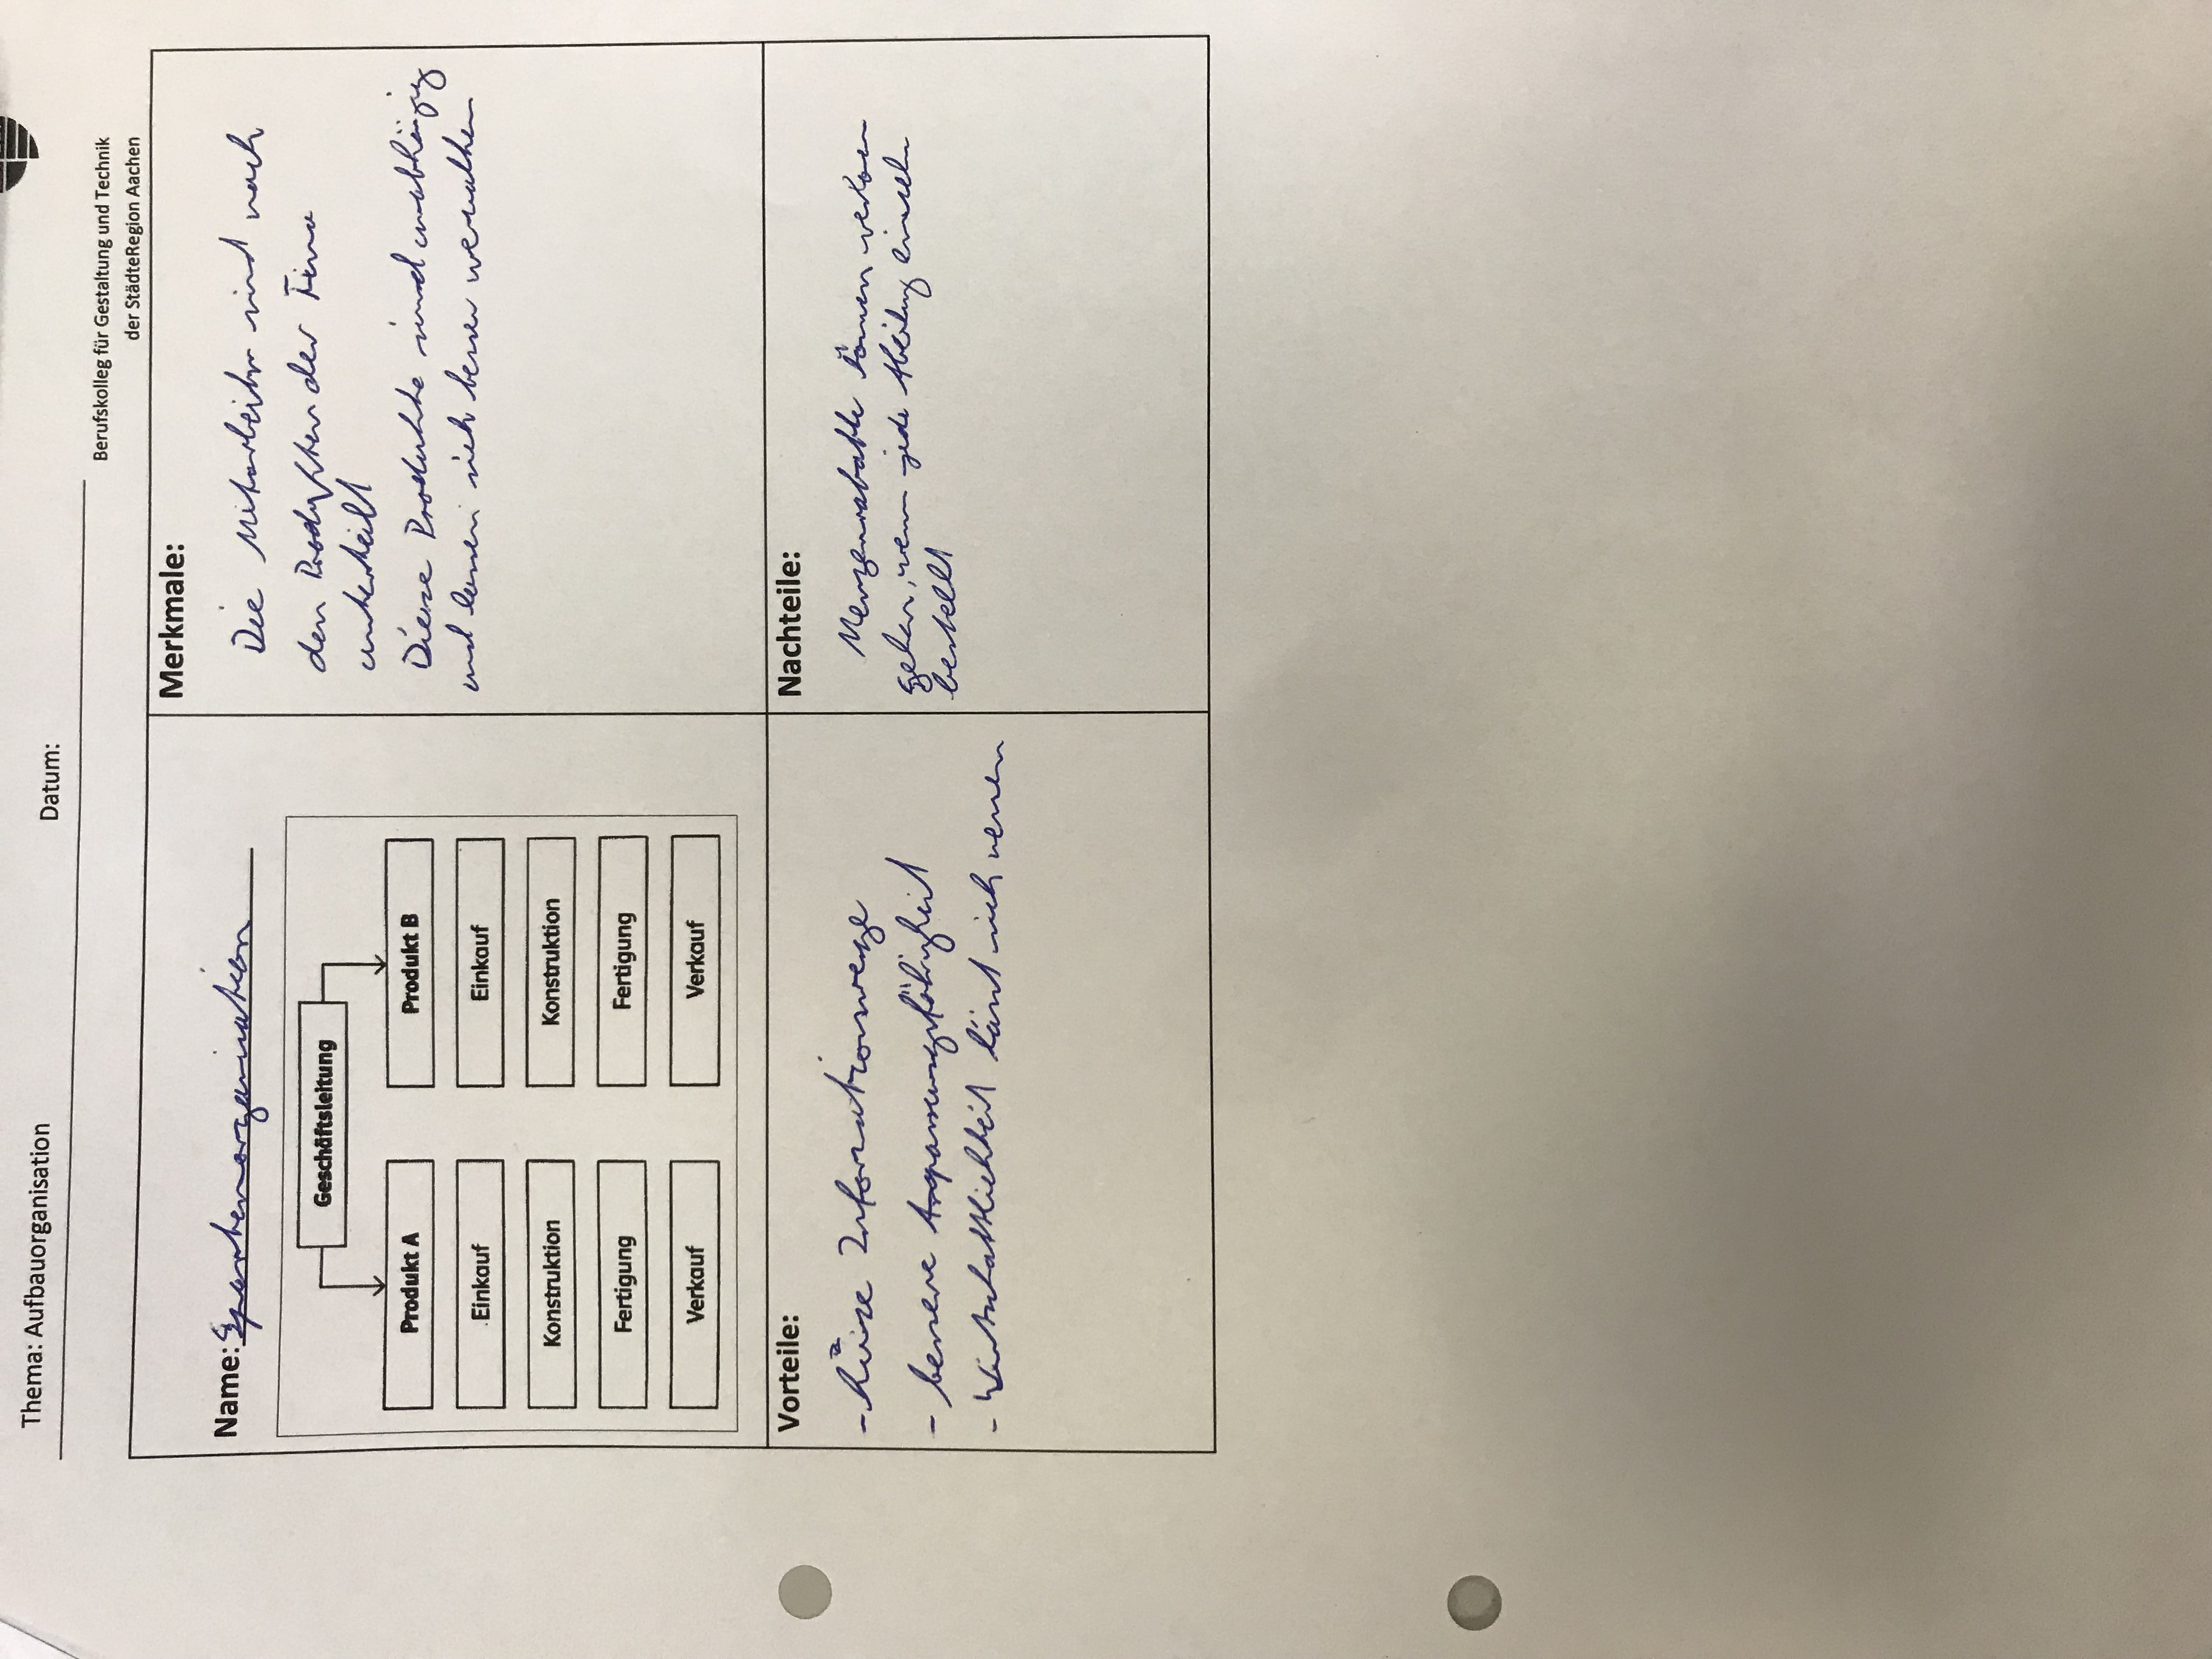 Thema: Aufbauorganisation
Datum:
Berufskolleg für Gestaltung und Technik
der StädteRegion Aachen
Name: Spartenorganisation
Geschäftsleitung
Produkt A
Produkt B
Einkauf
Einkauf
Konstruktion
Konstruktion
Fertigung
Fertigung
Verkauf
Verkauf
Merkmale:
Die Mitarbeiter sind nach
den Produkten der Firma
unterteilt
Diese Produkte sind unabhängig
und lassen sich besser verwalten
Vorteile:
- kürze Informationswege
- bessere Anpassungsfähigkeit
- Wirtschaftlichkeit lässt sich messen
Nachteile:
Mengenrabatte können verloren
gehen, wenn jede Abteilung einzeln
bestellt